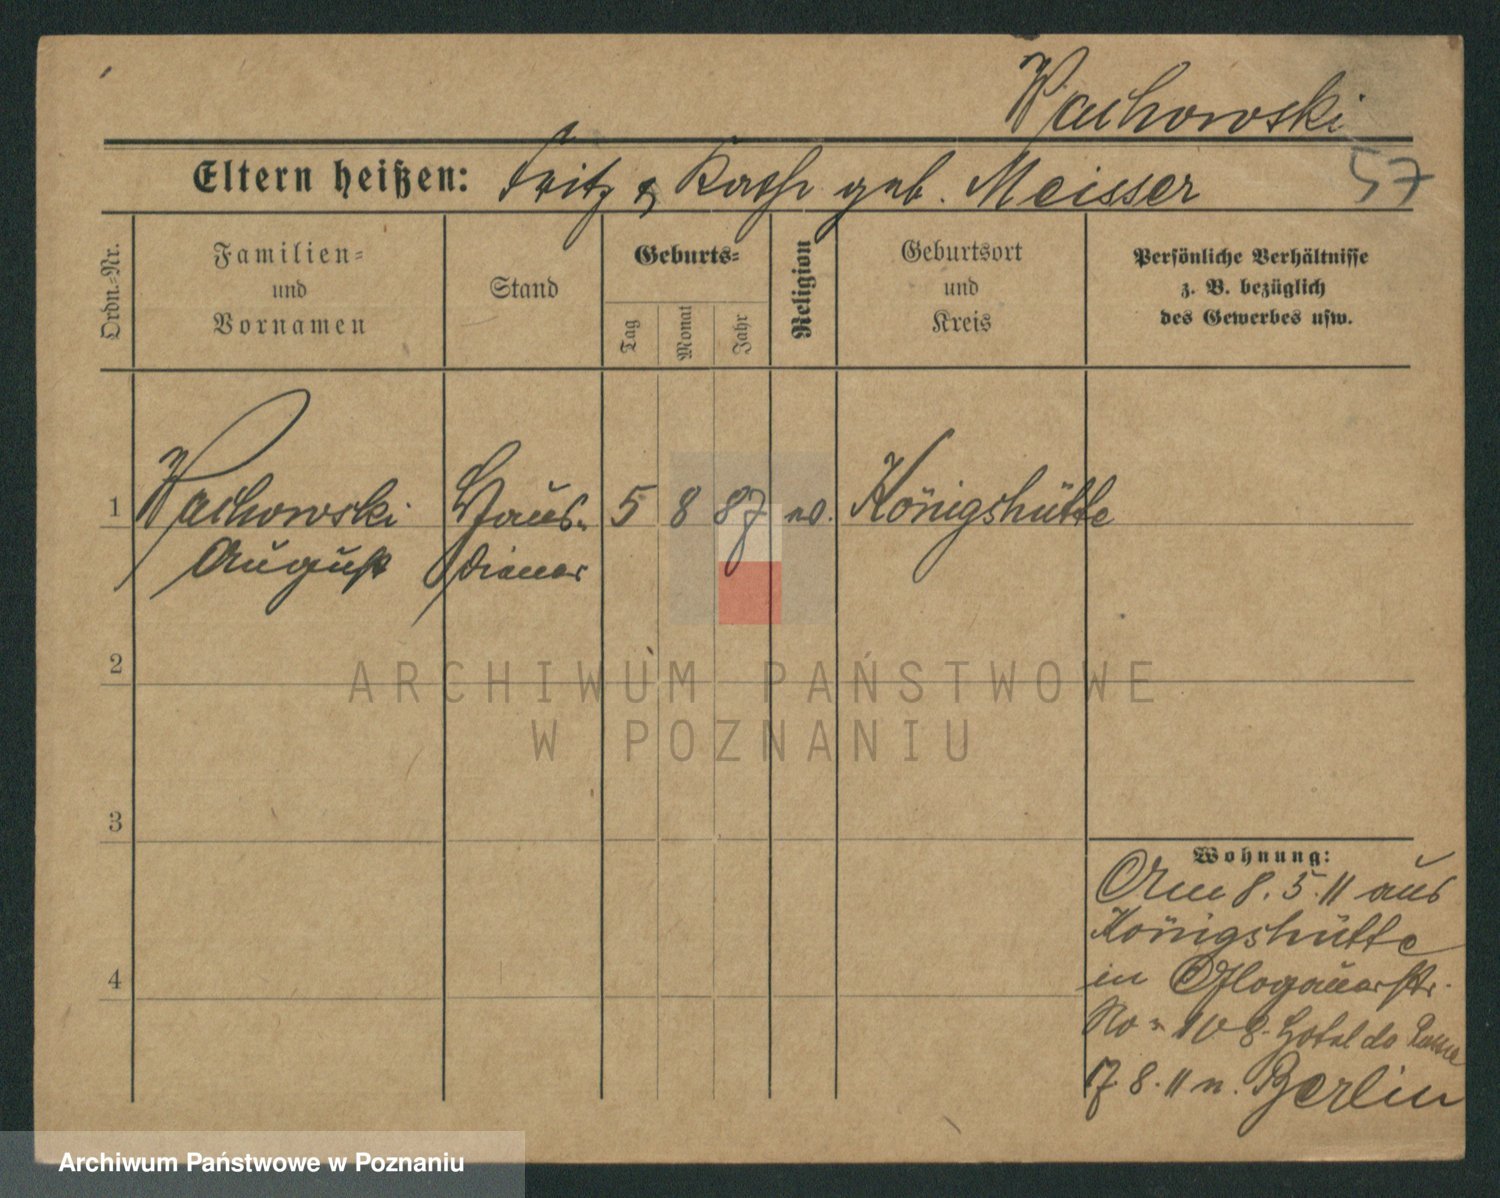 Wachowski
57
Eltern heißen: Fritz & Kathr geb. Meisser
Ordn.-Nr.
Familien-
und
Vornamen
Stand
Geburts-
Tag
Monat
Jahr
Religion
Geburtsort
und
Kreis
Persönliche Verhältnisse
z. B. bezüglich
des Gewerbes usw.
1 Wachowski Haus- 5 8 87 ev. Königshütte
August diener
2
ARCHIWUM PAŃSTWOWE
W POZNANIU
3
Wohnung:
Am 8.5.11 aus
Königshütte
4
in Glogauerstr.
No 108. Hotel de Rome
7.8.11 n. Berlin
Archiwum Państwowe w Poznaniu